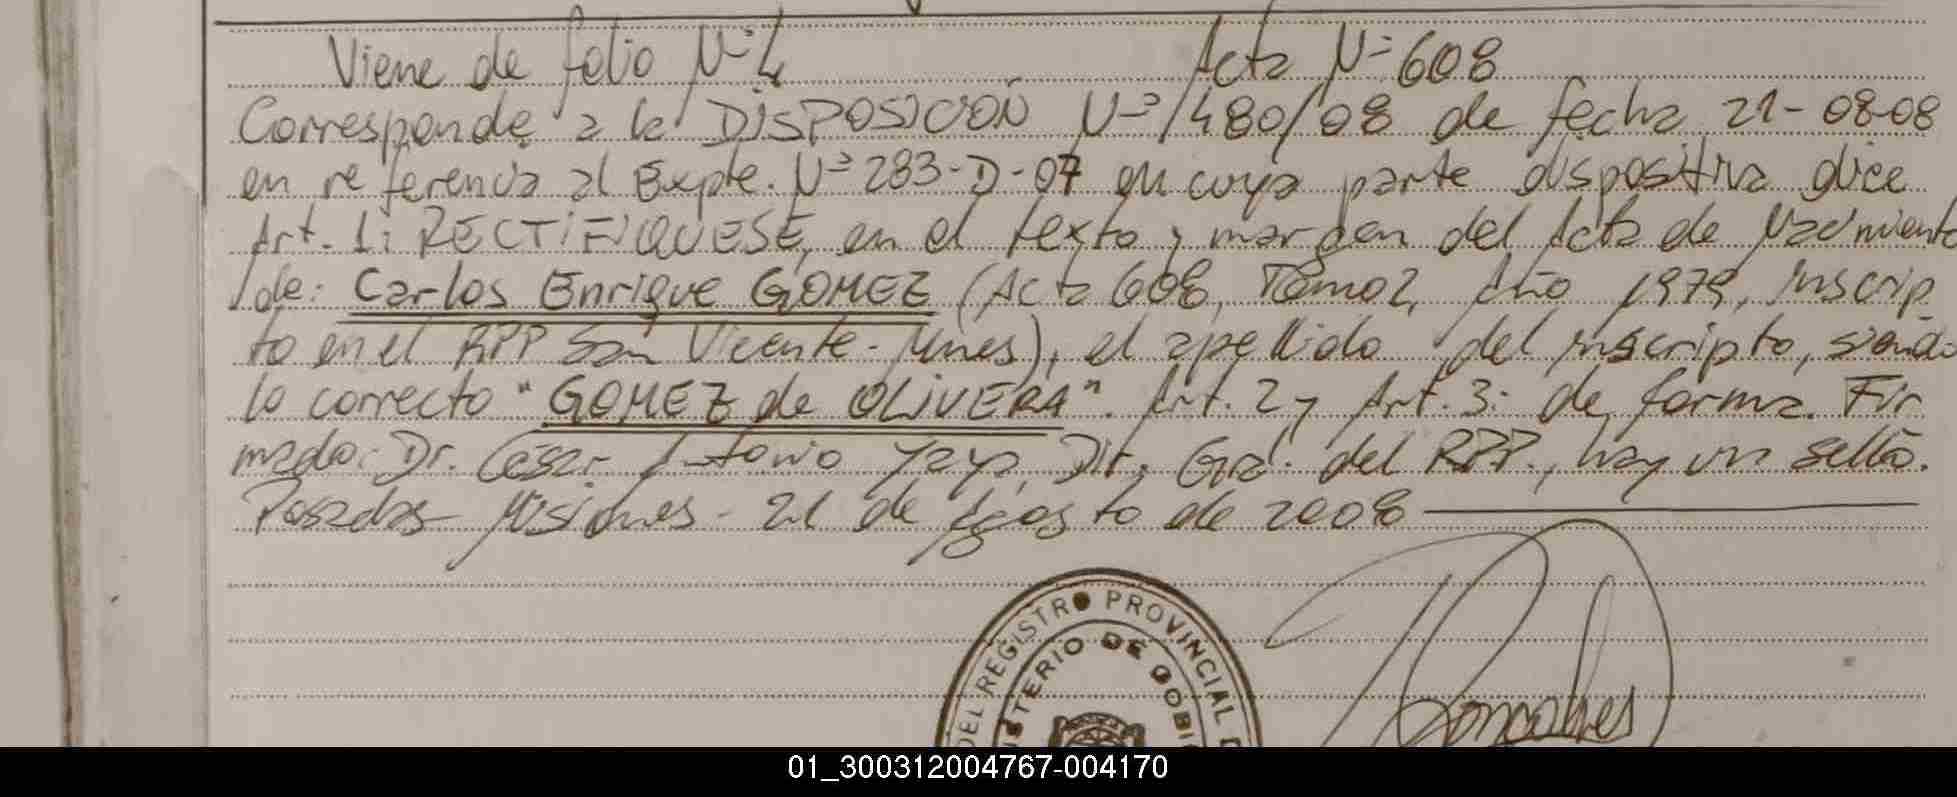 Viene de folio Nº 4 Acta Nº 608
Corresponde a la DISPOSICION Nº 1480/08 de fecha 21-08-08
en referencia al Expte. Nº 283-D-07 en cuya parte dispositiva dice
Art. 1: RECTIFIQUESE, en el texto y margen del Acta de Nacimiento
de: Carlos Enrique GOMEZ (Acta 608, Tomo 2, Año 1979, inscrip
to en el RPP San Vicente-Mnes), el apellido del inscripto, siendo
lo correcto "GOMEZ de OLIVERA". Art. 2 y Art. 3: de forma. Fir
mado: Dr. Cesar Antonio Yaya, Dir. Gral. del RPP., hay un sello.
Posadas Misiones - 21 de Agosto de 2008
DEL REGISTRO PROVINCIAL D
ISTERIO DE GOBI
01_300312004767-004170